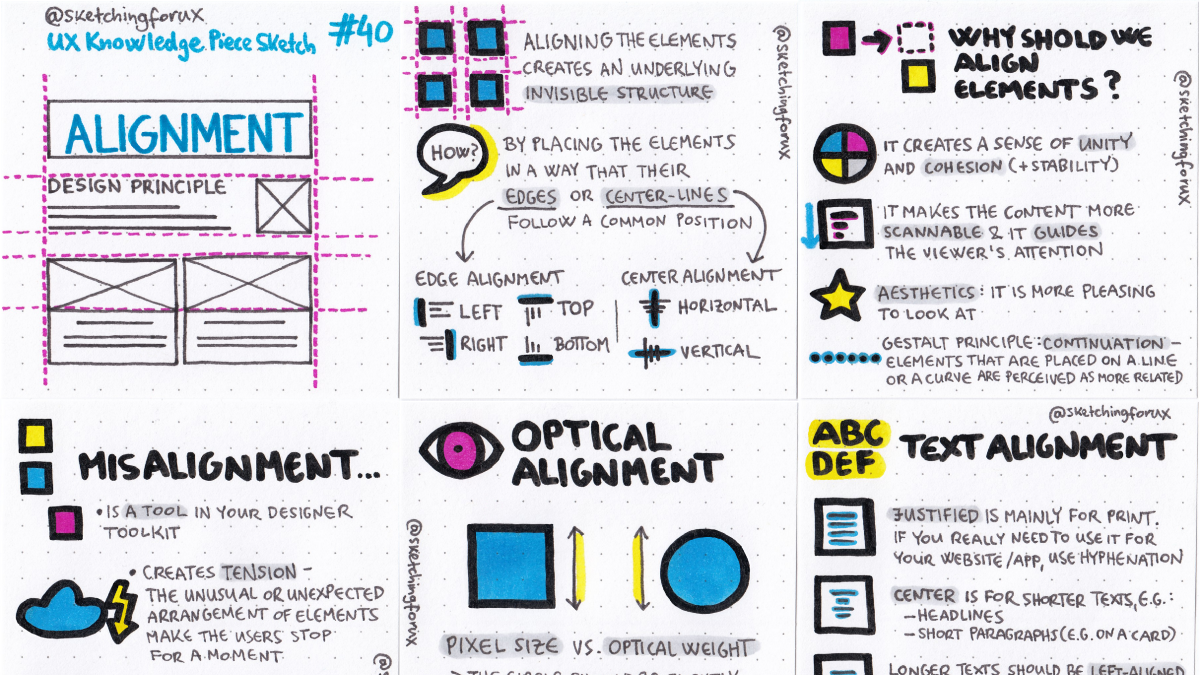 @sketchingforux
UX Knowledge Piece Sketch
#40
ALIGNMENT
DESIGN PRINCIPLE
ALIGNING THE ELEMENTS
CREATES AN UNDERLYING
INVISIBLE STRUCTURE
@sketchingforux
HOW?
BY PLACING THE ELEMENTS
IN A WAY THAT THEIR
EDGES OR CENTER-LINES
FOLLOW A COMMON POSITION
EDGE ALIGNMENT
LEFT
TOP
RIGHT
BOTTOM
CENTER ALIGNMENT
HORIZONTAL
VERTICAL
WHY SHOLD WE
ALIGN
ELEMENTS?
@sketchingforux
IT CREATES A SENSE OF UNITY
AND COHESION (+ STABILITY)
IT MAKES THE CONTENT MORE
SCANNABLE & IT GUIDES
THE VIEWER'S ATTENTION
AESTHETICS: IT IS MORE PLEASING
TO LOOK AT
GESTALT PRINCIPLE: CONTINUATION -
ELEMENTS THAT ARE PLACED ON A LINE
OR A CURVE ARE PERCEIVED AS MORE RELATED
MISALIGNMENT...
• IS A TOOL IN YOUR DESIGNER
TOOLKIT
• CREATES TENSION -
THE UNUSUAL OR UNEXPECTED
ARRANGEMENT OF ELEMENTS
MAKE THE USERS STOP
FOR A MOMENT.
OPTICAL
ALIGNMENT
@sketchingforux
PIXEL SIZE VS. OPTICAL WEIGHT
@sketchingforux
ABC
DEF
TEXT ALIGNMENT
JUSTIFIED IS MAINLY FOR PRINT.
IF YOU REALLY NEED TO USE IT FOR
YOUR WEBSITE/APP, USE HYPHENATION
CENTER IS FOR SHORTER TEXTS, E.G.:
- HEADLINES
- SHORT PARAGRAPHS (E.G. ON A CARD)
LONGER TEXTS SHOULD BE LEFT-ALIGNED